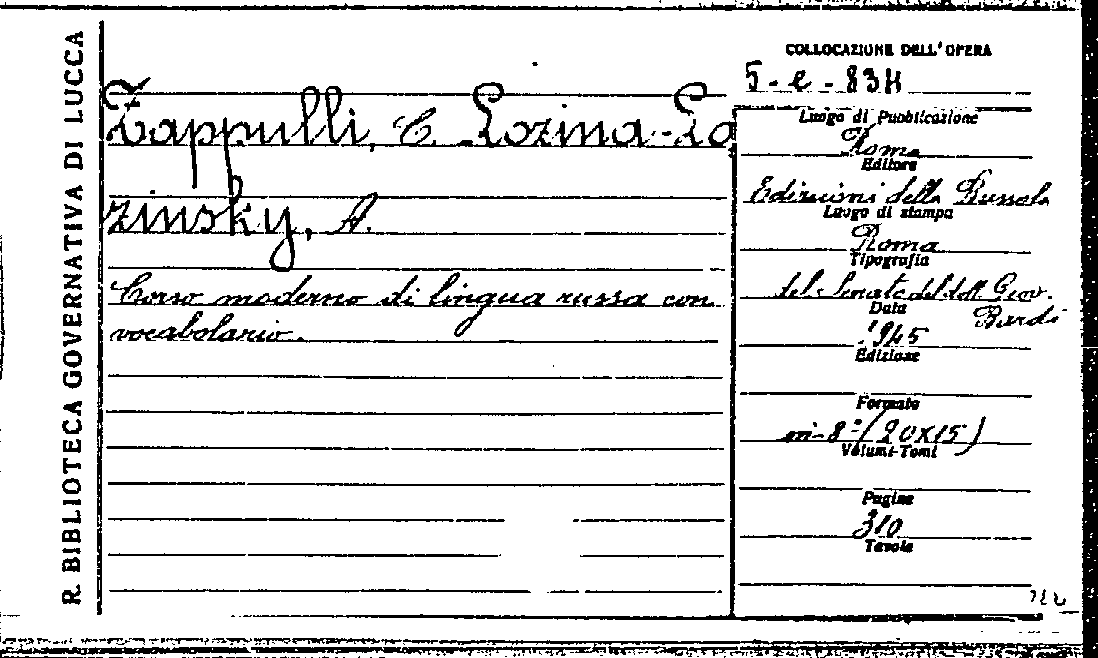 R. BIBLIOTECA GOVERNATIVA DI LUCCA
Zappulli, C. Lozina-Lo
zinsky, A.
Corso moderno di lingua russa con
vocabolario.
COLLOCAZIONE DELL'OPERA
5-e-834
Luogo di Pubblicazione
Roma
Editore
Edizioni della Bussola
Luogo di stampa
Roma
Tipografia
del Senato del dott. Giov.
Bardi
Data
1945
Edizione
Formato
in-8° (20x15)
Volumi-Tomi
Pagine
310
Tavole